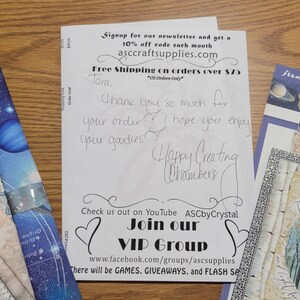 Signup for our newsletter and get a
10% off code each month
asccraftsupplies.com
Free Shipping on orders over $75
*US Orders Only*
Tara,
Thank you so much for
your order I hope you enjoy
your goodies
Happy Creating
Chambers
Check us out on YouTube ASCbyCrystal
Join our
VIP Group
www.facebook.com/groups/ascsupplies
There will be GAMES, GIVEAWAYS, and FLASH SA